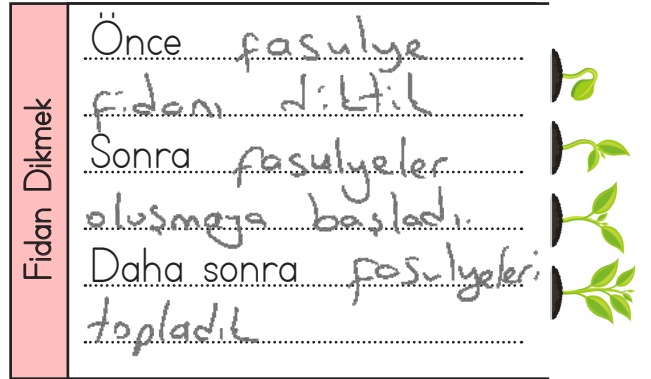 Fidan Dikmek
Önce fasulye
fidanı diktik
Sonra fasulyeler
oluşmaya başladı.
Daha sonra fasulyeleri
topladık